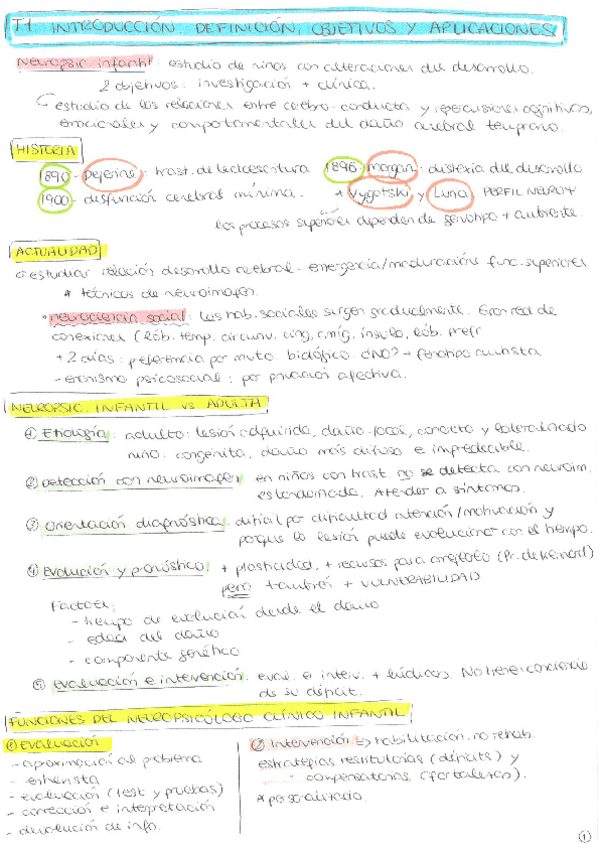 T1 INTRODUCCIÓN. DEFINICIÓN, OBJETIVOS Y APLICACIONES
Neuropsic infantil: estudio de niños con alteraciones del desarrollo.
2 objetivos: investigación + clínica.
estudio de las relaciones entre cerebro-conducta y repercusiones cognitivas,
emocionales y comportamentales del daño cerebral temprano.
HISTORIA
1890 - Dejerine: trast. de lectoescritura
1896 - Morgan: dislexia del desarrollo
1900 - disfunción cerebral mínima.
* Vygotski y Luria. PERFIL NEURO+
los procesos superior dependen de genotipo + ambiente.
ACTUALIDAD
estudiar relación desarrollo cerebral - emergencia/maduración func. superiores
* técnicas de neuroimagen.
• neurociencia social: Las hab. sociales surgen gradualmente. Gran red de
conexiones (lób. temp. circunv. cing, amíg, ínsula, lób. prefr
+ 2 días: preferencia por mvto biológico. ¿NO? → fenotipo autista
- enanismo psicosocial: por privación afectiva.
NEUROPSIC. INFANTIL vs ADULTA
① Etiología: adulto: lesión adquirida, daño focal, concreto y lateralizado
niño: congénita, daño más difuso e impredecible.
② Detección con neuroimagen: en niños con trast. no se detecta con neuroim.
estandarizada. Atender a síntomas.
③ Orientación diagnóstica: difícil por dificultad atención/motivación y
porque la lesión puede evolucionar con el tiempo.
④ Evolución y pronóstico: + plasticidad, + recursos para (Pr. de Kennard)
pero también + VULNERABILIDAD
Factores:
- tiempo de evolución desde el daño
- edad del daño
- componente genético
⑤ evaluación e intervención: eval. e interv. + lúdicas. No tiene conciencia
de su déficit.
FUNCIONES DEL NEUROPSICÓLOGO CLÍNICO INFANTIL
① Evaluación
- aproximación al problema
- entrevista
- evaluación (test y pruebas)
- corrección e interpretación
- devolución de info.
② Intervención → habilitación, no rehab.
estrategias restitutorias (déficits) y
compensatorias (fortalezas).
* personalizada.
1